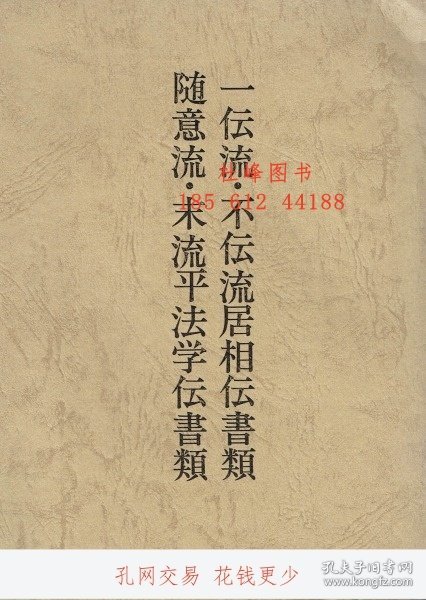 一伝流・不伝流居相伝書類
随意流・末流平法学伝書類
杜峰图书
185 612 44188
孔网交易 花钱更少
孔夫子旧书网
www.kongfz.com